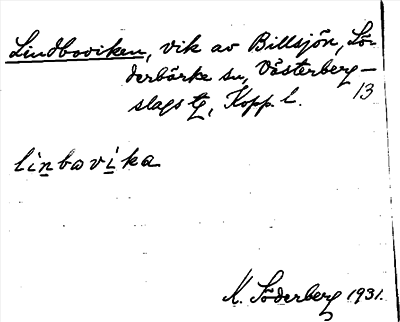 Lindboviken, vik av Billsjön, Sö-
derbärke sn, Västerberg-
slags tg, Kopp. l. 13
linbavika
K. Söderberg 1931.